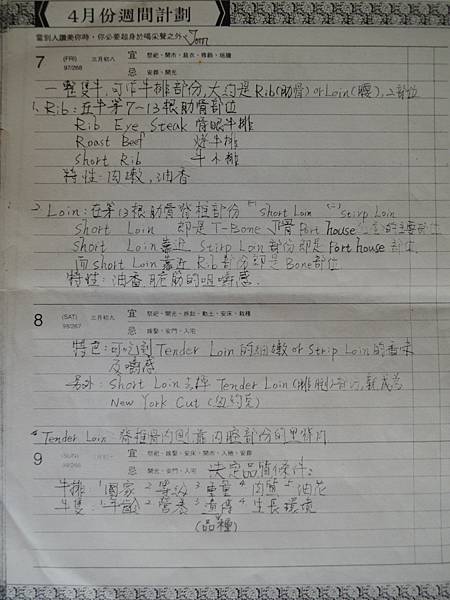 4月份週間計劃
當別人讚美你時,你必要超身於喝采聲之外。 Tom
7 (FRI) 三月初八 宜 祭祀、開市、裁衣
97/268 忌 安葬、開光
一整隻牛,可作牛排部份,大約是Rib(肋骨) or Loin(腰),2部位
1. Rib:在牛第7-13根肋骨部位
Rib Eye Steak 肋眼牛排
Roast Beef 烤牛排
Short Rib 牛小排
特性:肉嫩,油香
2 Loin:在第13根肋骨脊椎部份 (一) Short Loin (二) Stirp Loin
Short Loin 即是 T-Bone 丁骨 Port house 的主要部位
Short Loin 靠近 Stirp Loin 部份即是 Port house 部位
而 Short Loin 靠近 Rib 部份即是 Bone部位
特性:油香,肥筋的咀嚼感.
8 (SAT) 三月初九 宜 祭祀、開光、動土、安床、栽種
98/267 忌 嫁娶、安門、入宅
特色:可吃到 Tender Loin的細嫩 or Strip Loin的香味
及嚼感
另外:Short Loin去掉 Tender Loin (排側)部份,就成為
New York Cut (紐約克)
* Tender Loin 脊椎骨內側靠內腔部份的里脊肉
9 (SUN) 宜 祭祀、嫁娶、安床、開市、入殮、安葬
忌 開光、安門、入宅 決定品質條件:
牛排 1國家 2等級 3重量 4肉質 5油花
牛隻 1年齡 2營養 3遺傳 4生長環境
(品種)